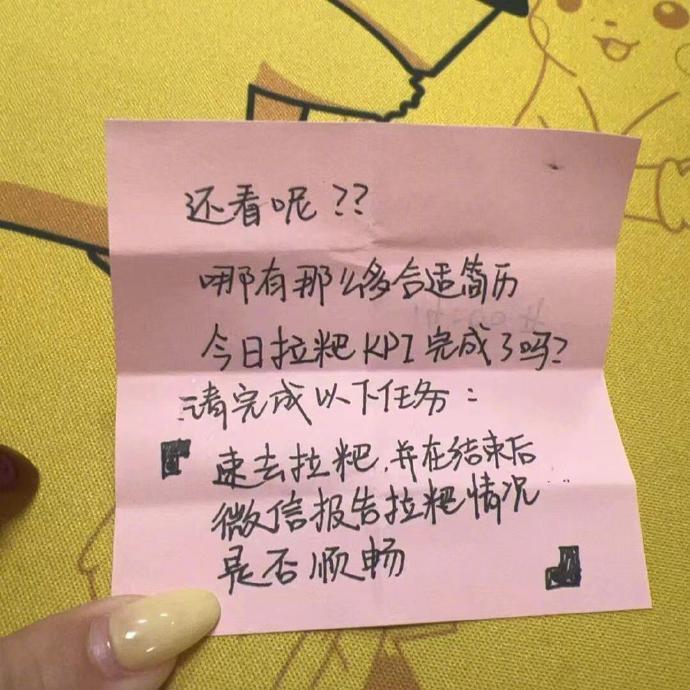 还看呢??
哪有那么多合适简历
今日拉粑KPI完成了吗?
请完成以下任务:
『速去拉粑,并在结束后
微信报告拉粑情况
是否顺畅』